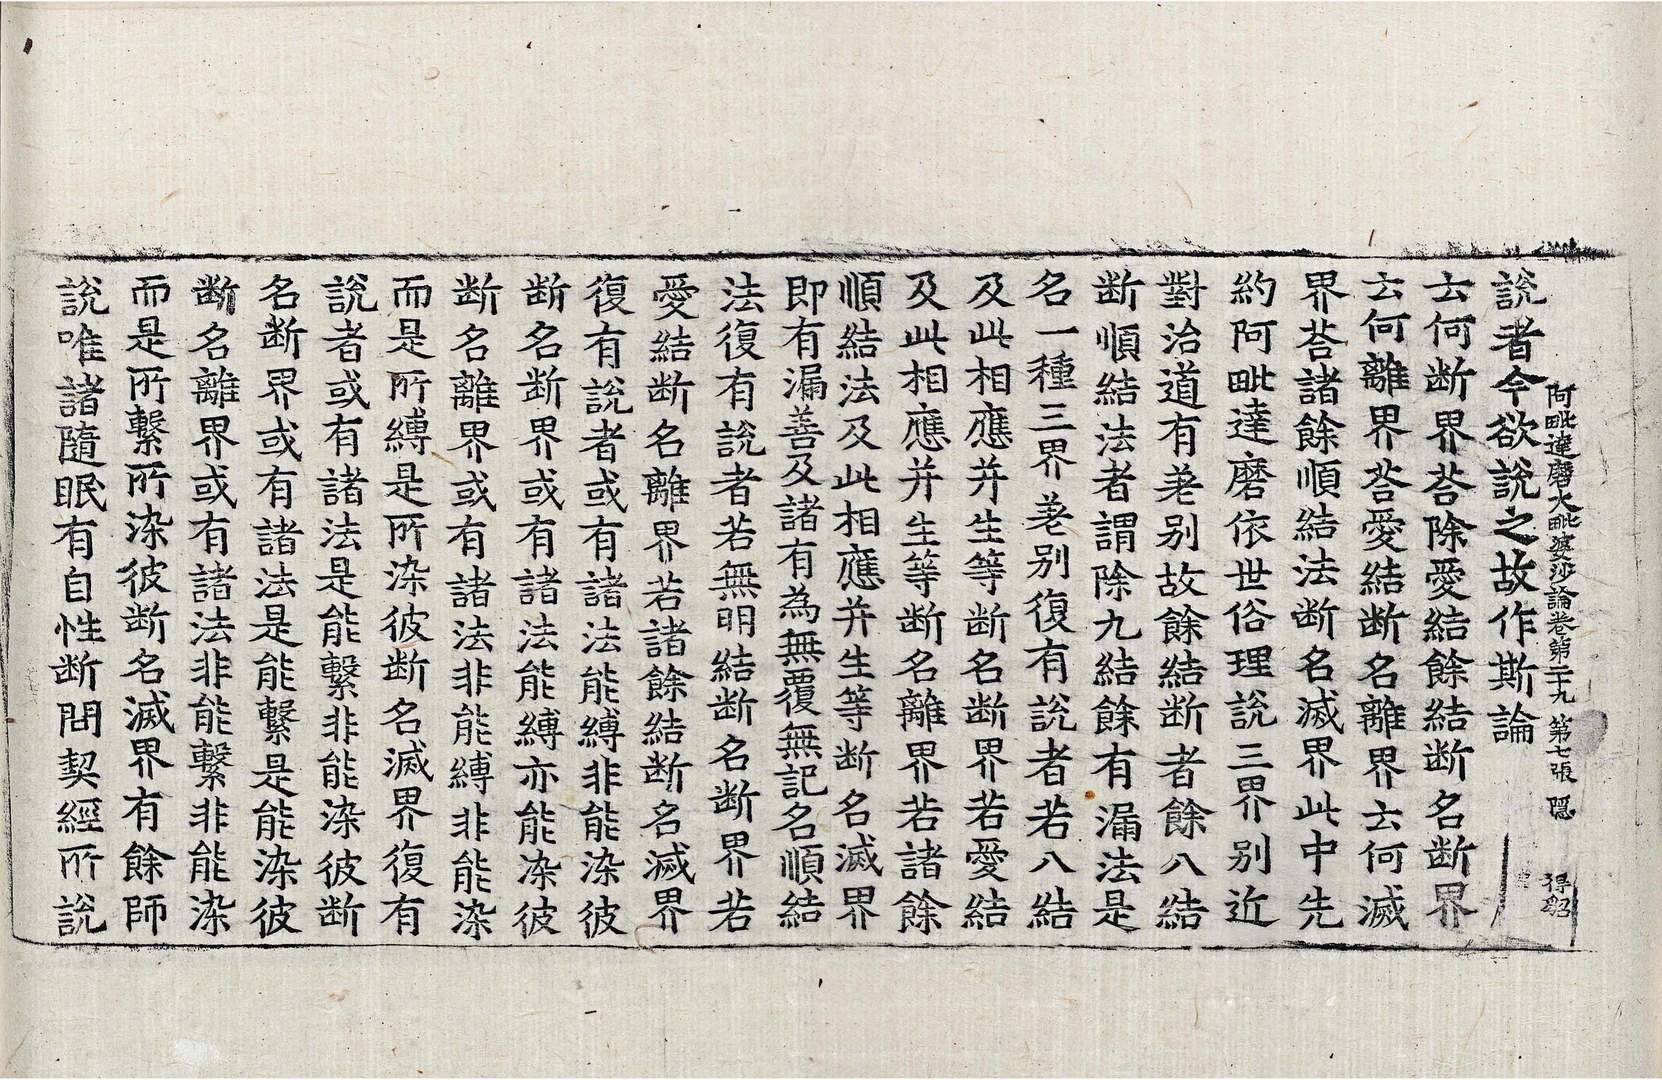 阿毗達磨大毗婆沙論卷第二十九 第七張 隱 得紹
說者今欲說之故作斯論
云何斷界荅除愛結餘結斷名斷界
云何離界荅愛結斷名離界云何滅
界荅諸餘順結法斷名滅界此中先
約阿毗達磨依世俗理說三界別近
對治道有差別故餘結斷者餘八結
斷順結法者謂除九結餘有漏法是
名一種三界差別復有說者若八結
及此相應并生等斷名斷界若愛結
及此相應并生等斷名離界若諸餘
順結法及此相應并生等斷名滅界
即有漏善及諸有為無覆無記名順結
法復有說者若無明結斷名斷界若
愛結斷名離界若諸餘結斷名滅界
復有說者或有諸法能縛非能染彼
斷名斷界或有諸法能縛亦能染彼
斷名離界或有諸法非能縛非能染
而是所縛是所染彼斷名滅界復有
說者或有諸法是能繫非能染彼斷
名斷界或有諸法是能繫是能染彼
斷名離界或有諸法非能繫非能染
而是所繫所染彼斷名滅界有餘師
說唯諸隨眠有自性斷問契經所說